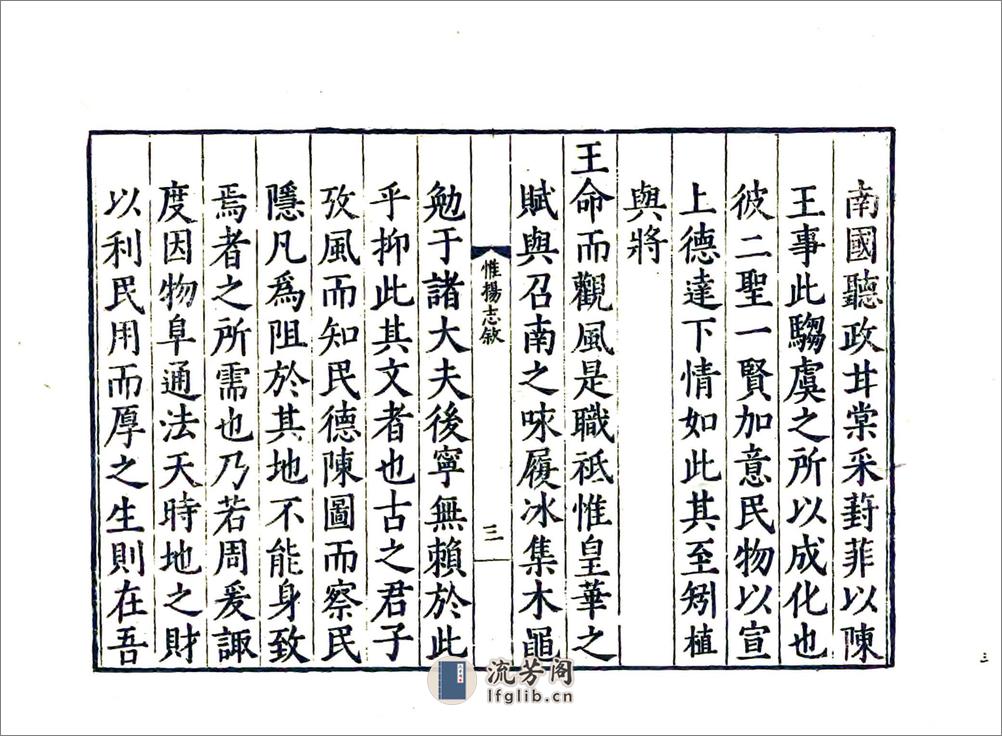 南國聽政甘棠采葑菲以陳
王事此騶虞之所以成化也
彼二聖一賢加意民物以宣
上德達下情如此其至矧植
與將
王命而觀風是職祗惟皇華之
賦與召南之咏履冰集木黽
惟揚志敘
三
勉于諸大夫後寧無賴於此
乎抑此其文者也古之君子
攷風而知民德陳圖而察民
隱凡爲阻於其地不能身致
焉者之所需也乃若周爰諏
度因物阜通法天時地之財
以利民用而厚之生則在吾
三
流芳阁
lfglib.cn